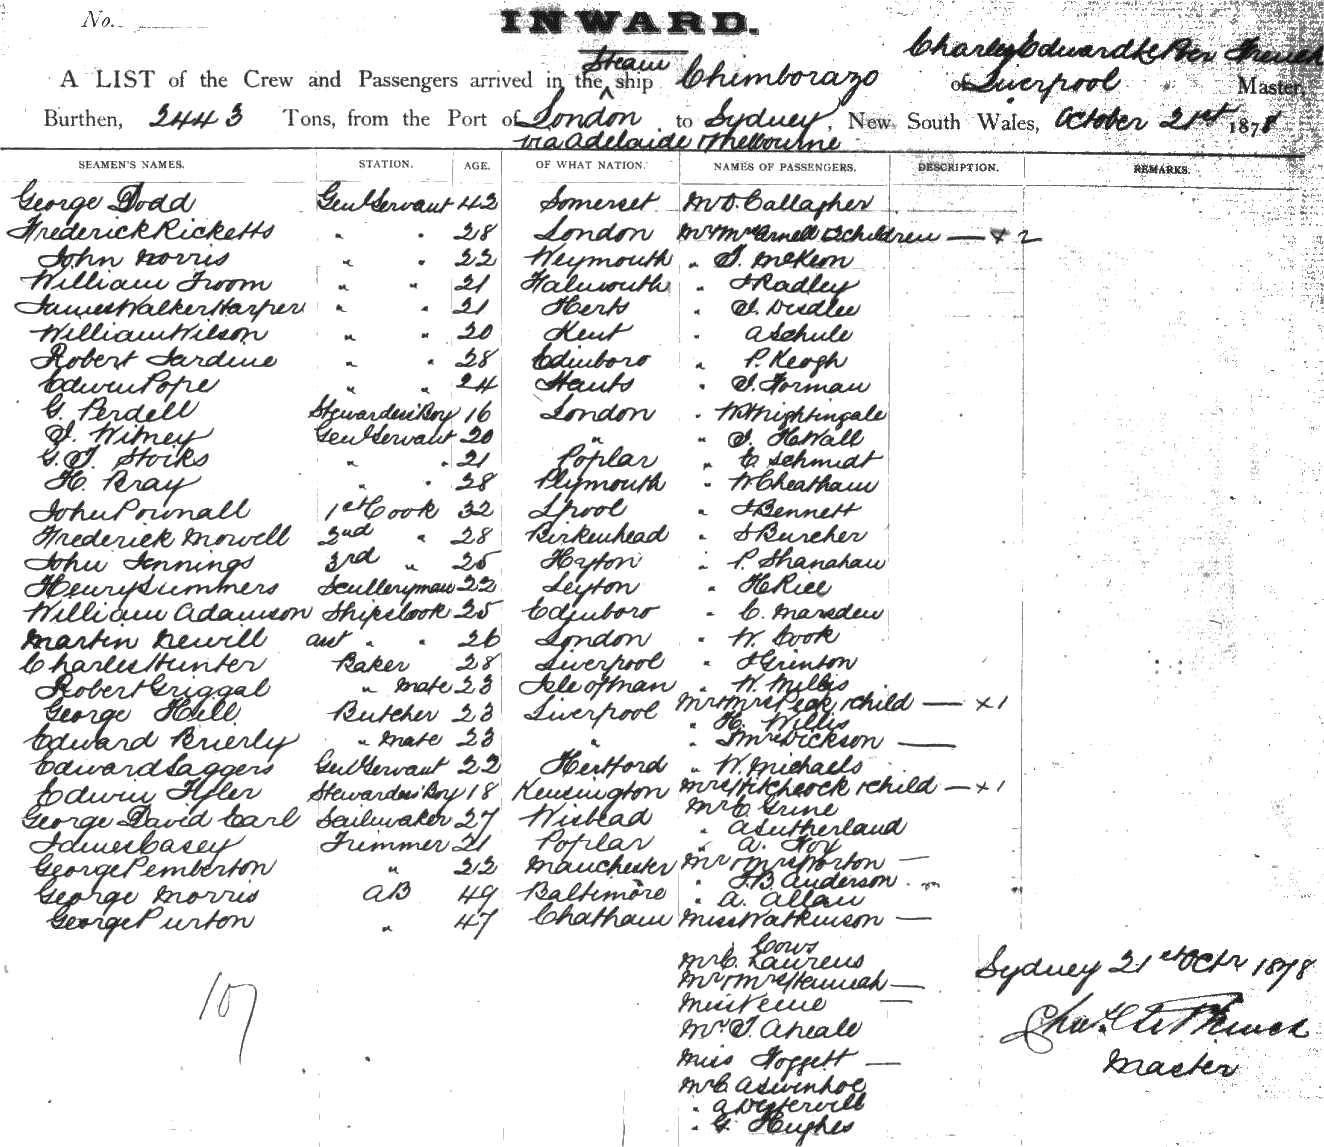 No.
INWARD.
Charles Edward Le Poer Trench
A LIST of the Crew and Passengers arrived in the Steam ship Chimborazo of Liverpool Master,
Burthen, 2443 Tons, from the Port of London to Sydney, New South Wales, October 21st 1878
via Adelaide & Melbourne
SEAMEN'S NAMES. STATION. AGE. OF WHAT NATION. NAMES OF PASSENGERS. DESCRIPTION. REMARKS.
George Dodd Genl Servant 42 Somerset Mr D. Callagher
Frederick Ricketts " " 28 London Mr & Mrs Arnell & 2 children — x 2
John Norris " " 22 Weymouth " J. McKeon
William Froom " " 21 Falmouth " J Radley
James Walker Harper " " 21 Herts " J. Dudlee
William Wilson " " 20 Kent " A Schule
Robert Jardine " " 28 Edinboro " P. Keogh
Edwin Pope " " 24 Hants " J. Forman
G. Perdell Stewardess' Boy 16 London " W Nightingale
J. Witney Genl Servant 20 " " J. H Wall
G. J. Stoiks " " 21 Poplar " C. Schmidt
H. Bray " " 28 Plymouth " W Cheatham
John Pownall 1st Cook 32 Lpool " J Bennett
Frederick Mowell 2nd " 28 Birkenhead " J Burcher
John Jennings 3rd " 25 Hyton " P. Shanahan
Henry Summers Scullery man 22 Leyton " H Rice
William Adamson Ships Cook 25 Edinboro " C. Marsden
Martin Newill asst " " 26 London " W. Cook
Charles Hunter Baker 28 Liverpool " J Grinton
Robert Griggal " Mate 23 Isle of Man " W. Millis
George Hill Butcher 23 Liverpool Mr & Mrs Peek 1 child — x 1
" H. Willis
Edward Brierly " Mate 23 " " & Mrs Dickson —
Edward Saggers Genl Servant 22 Hertford " W. Michaels
Edwin Tyler Stewardess' Boy 18 Kensington Mrs Hitchcock 1 child — x 1
Mr C. Grine
George David Carl Sailmaker 27 Wisbead " A Sutherland
James Casey Trimmer 21 Poplar " A. Foy
George Pemberton " 22 Manchester Mr & Mrs Norton —
" J. B. Anderson
George Morris AB 49 Baltimore " A. Allan
George Purton " 47 Chatham Miss Watkinson —
" Cows
Mr C. Laurens
Mr & Mrs Hannah —
Miss Keine —
Mr J. A Neale
Miss Foggett —
Mr C. A Swinhoe
" A Westervill
" G. Hughes
107
Sydney 21st Octr 1878
Chas. E Le P Trench
Master